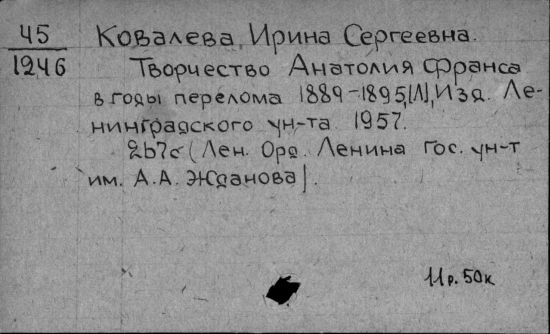 45
1246
Ковалева, Ирина Сергеевна.
Творчество Анатолия Франса
в годы перелома 1889-1895, [Л], Изд. Ле-
нинградского ун-та. 1957.
267с (Лен. Орд. Ленина гос. ун-т
им. А.А. Жданова).
11р. 50к